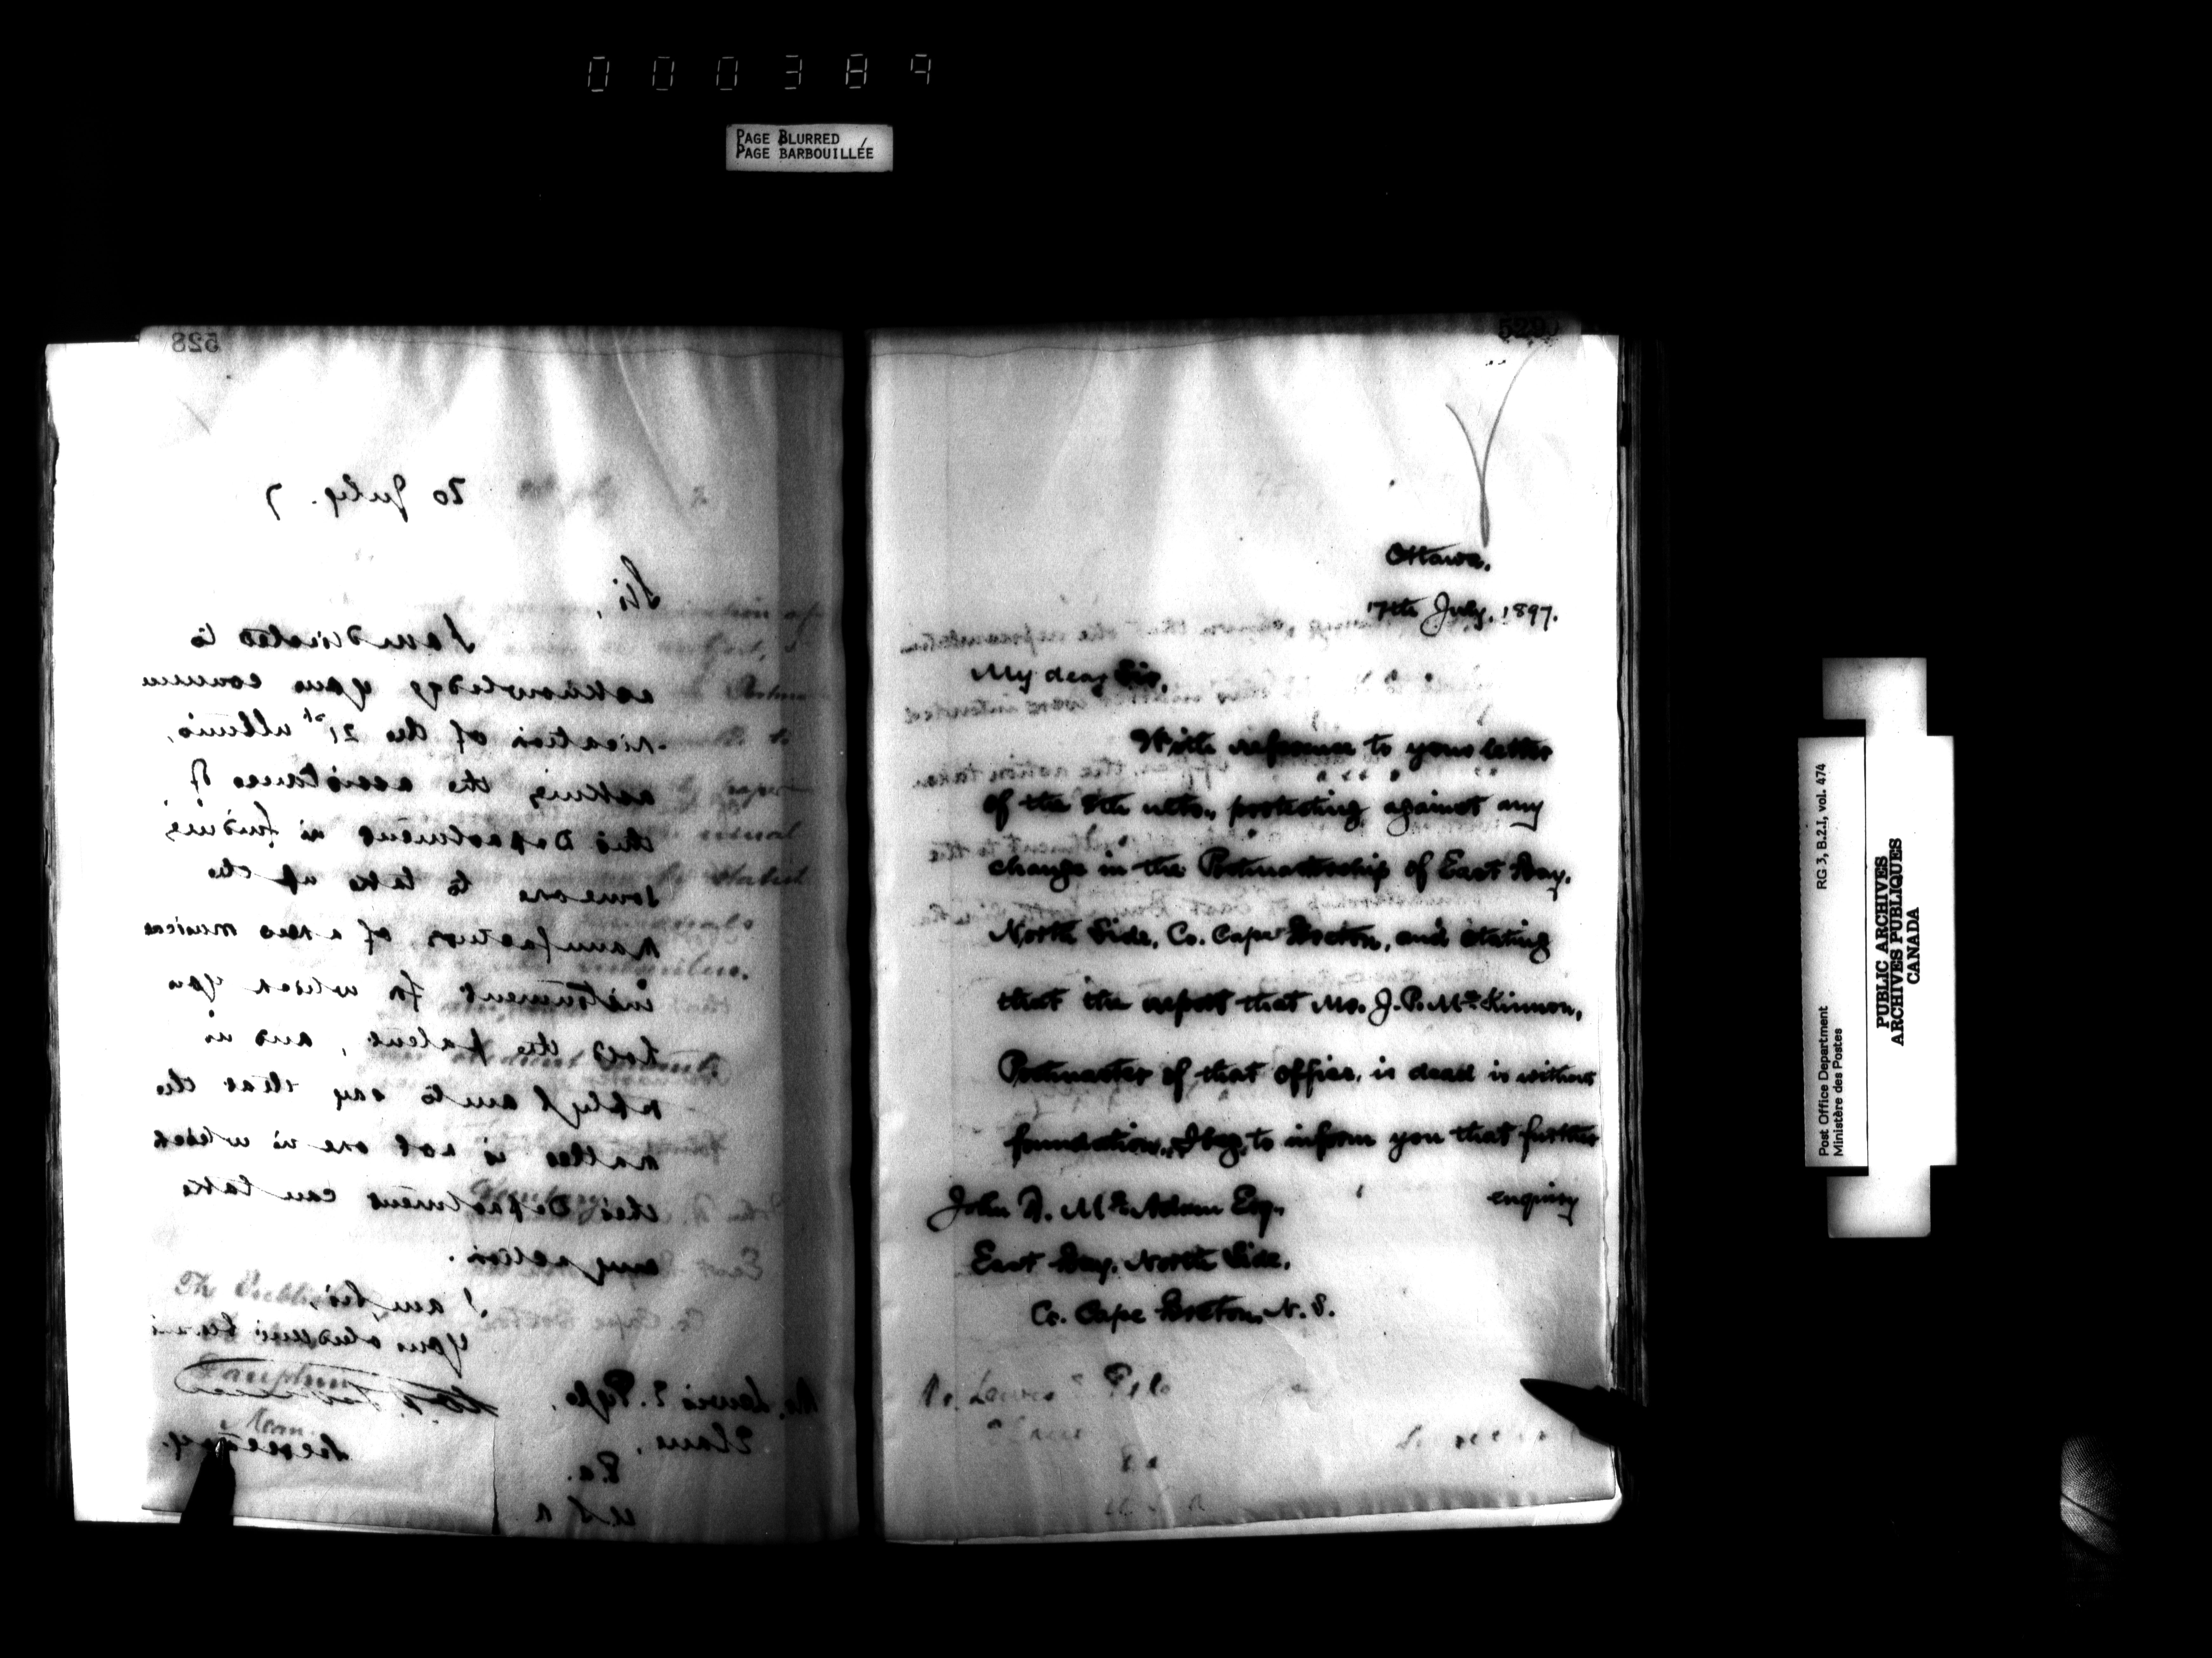 000389
PAGE BLURRED
PAGE BARBOUILLÉE
528
20 July. 7
Sir,
I am directed to
acknowledge your commu
-nication of the 21st ultimo,
asking the assistance of
this Department in finding
someone to take up the
manufacture of a new musical
instrument for which you
hold the patent, and in
reply I am to say that the
matter is not one in which
this Department can take
any action.
I am, Sir,
Your obedient Servant
Secretary.
Mr. Lewis Pyle,
Pa.
U S A
529
Ottawa.
17th July, 1897.
My dear Sir,
With reference to your letter
of the 8th ulto., protesting against any
change in the Postmastership of East Bay,
North Side, Co. Cape Breton, and stating
that the report that Mr. J. P. McKinnon,
Postmaster of that office, is dead is without
foundation, I beg to inform you that further
enquiry
John A. McAdam Esq.
East Bay, North Side,
Co. Cape Breton, N. S.
Post Office Department
Ministère des Postes
RG 3, B.2.I, vol. 474
PUBLIC ARCHIVES
ARCHIVES PUBLIQUES
CANADA